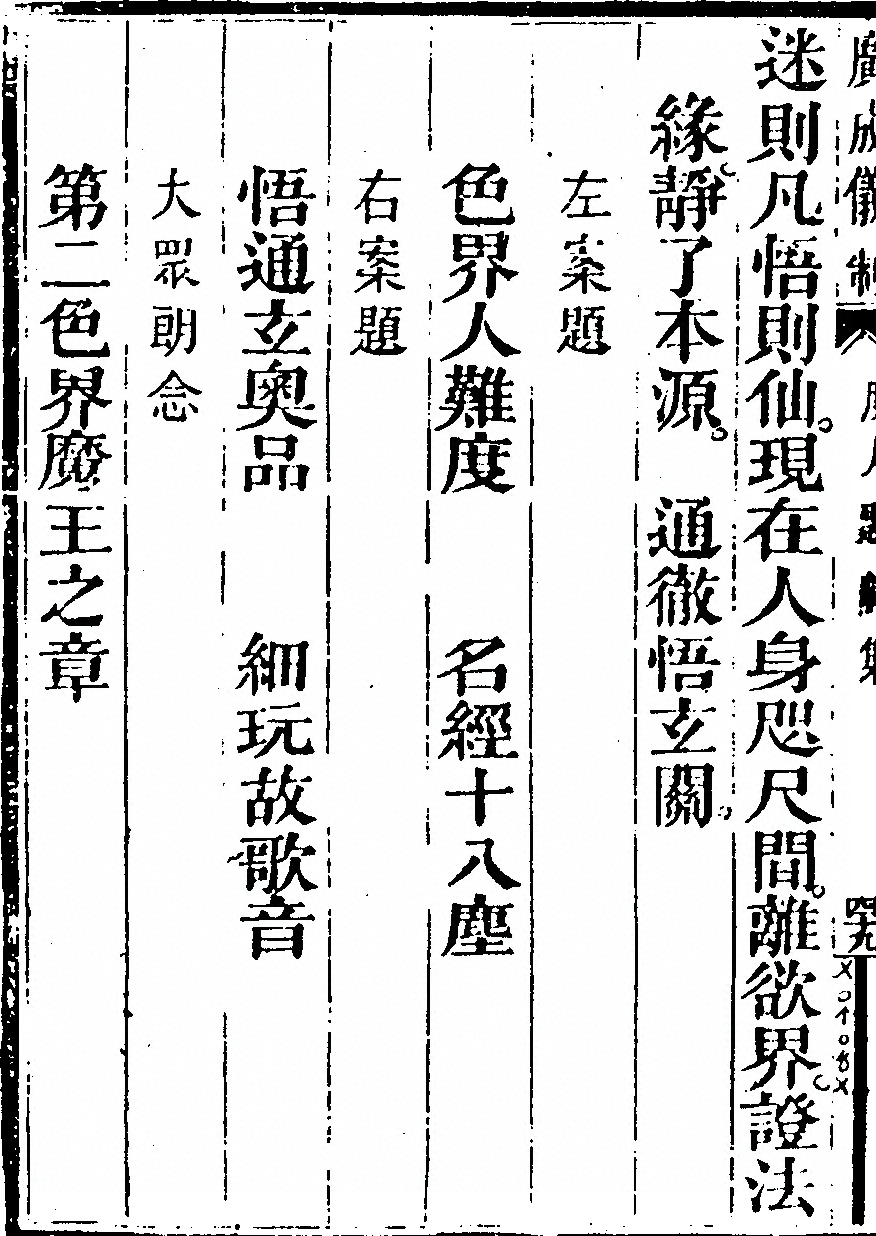 廣成儀制
四九
迷則凡悟則仙。現在人身咫尺間。離欲界。證法
緣。靜了本源。 通徹悟玄關。
左案題
色界人難度 名經十八塵
右案題
悟通玄奧品 細玩故歌音
大眾朗念
第二色界魔王之章